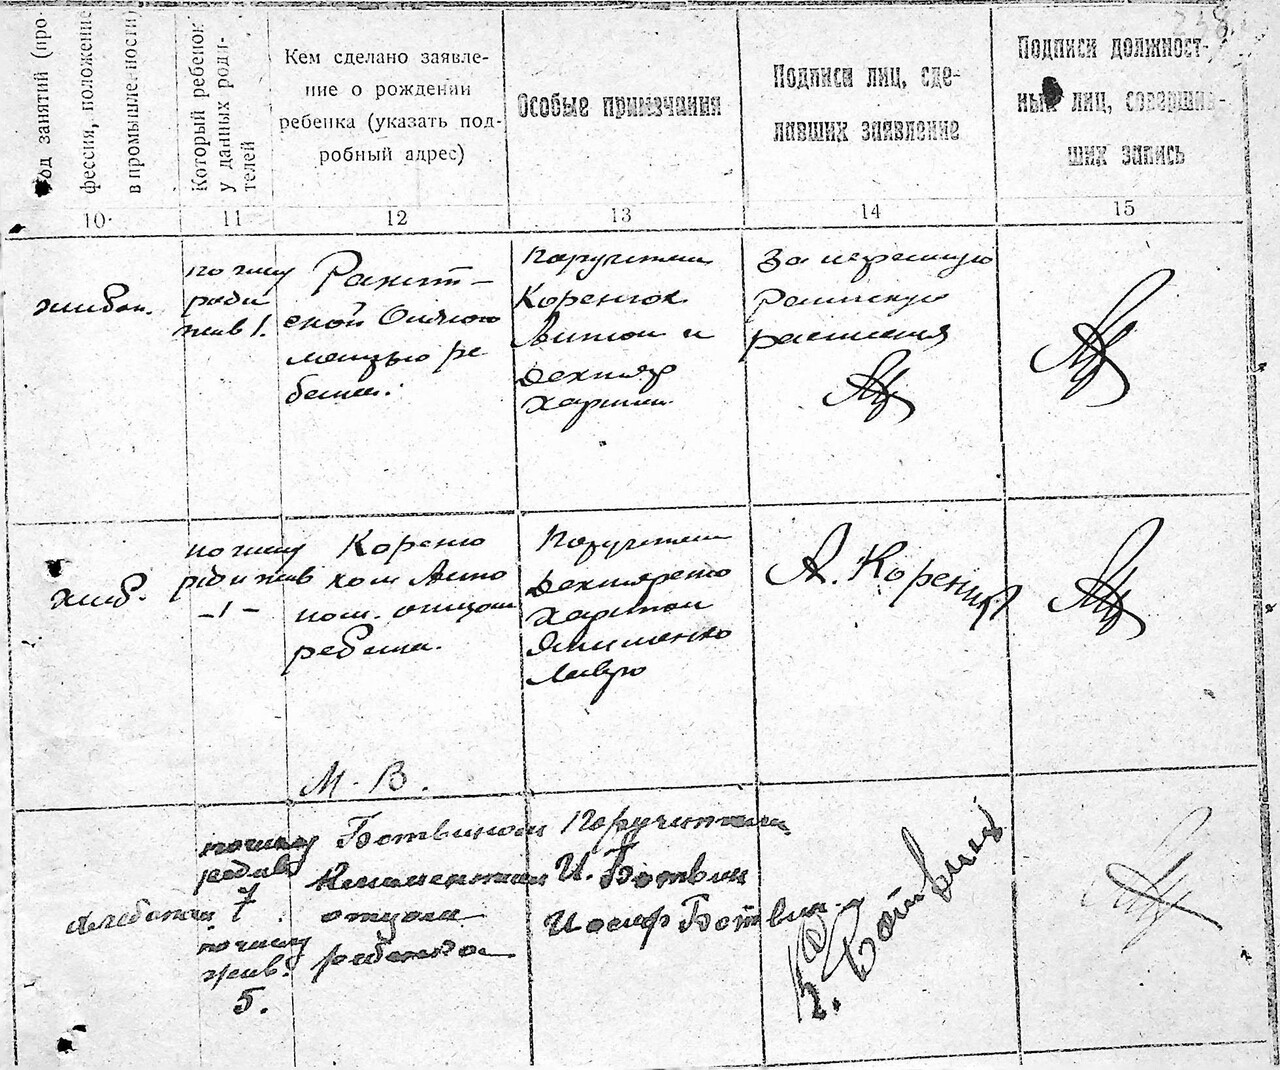 238
од занятий (про-
фессия, положение
в промышленности)
Который ребенок
у данных роди-
телей
Кем сделано заявле-
ние о рождении
ребенка (указать под-
робный адрес)
Особые примечания
Подписи лиц, сде-
лавших заявление
Подписи должност-
ных лиц, совершив-
ших запись
10
11
12
13
14
15
по числу
роди
жив 1.
ской
матерью ре
бенка.
Поручители
Коренюк
Антон и
Харитон
За неграмотную
расписался
хлеб.
по числу
роди жив
-1-
Кореню
ком Анто
ном. отцом
ребенка.
Поручители
Дехтяренко
Харитон
Якименко
Лавро
А. Коренюк
М. В.
по числу
родив
7
по числу
жив.
5.
Ботвином
Климентием
отцом
ребенка
Поручители
И. Ботвин
Иосиф Ботвин
Ботвин